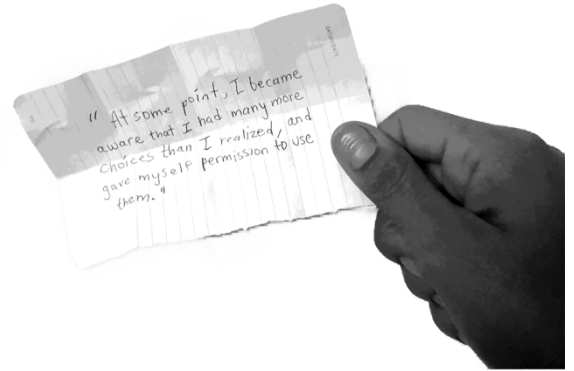 " At some point, I became
aware that I had many more
choices than I realized, and
gave myself permission to use
them."